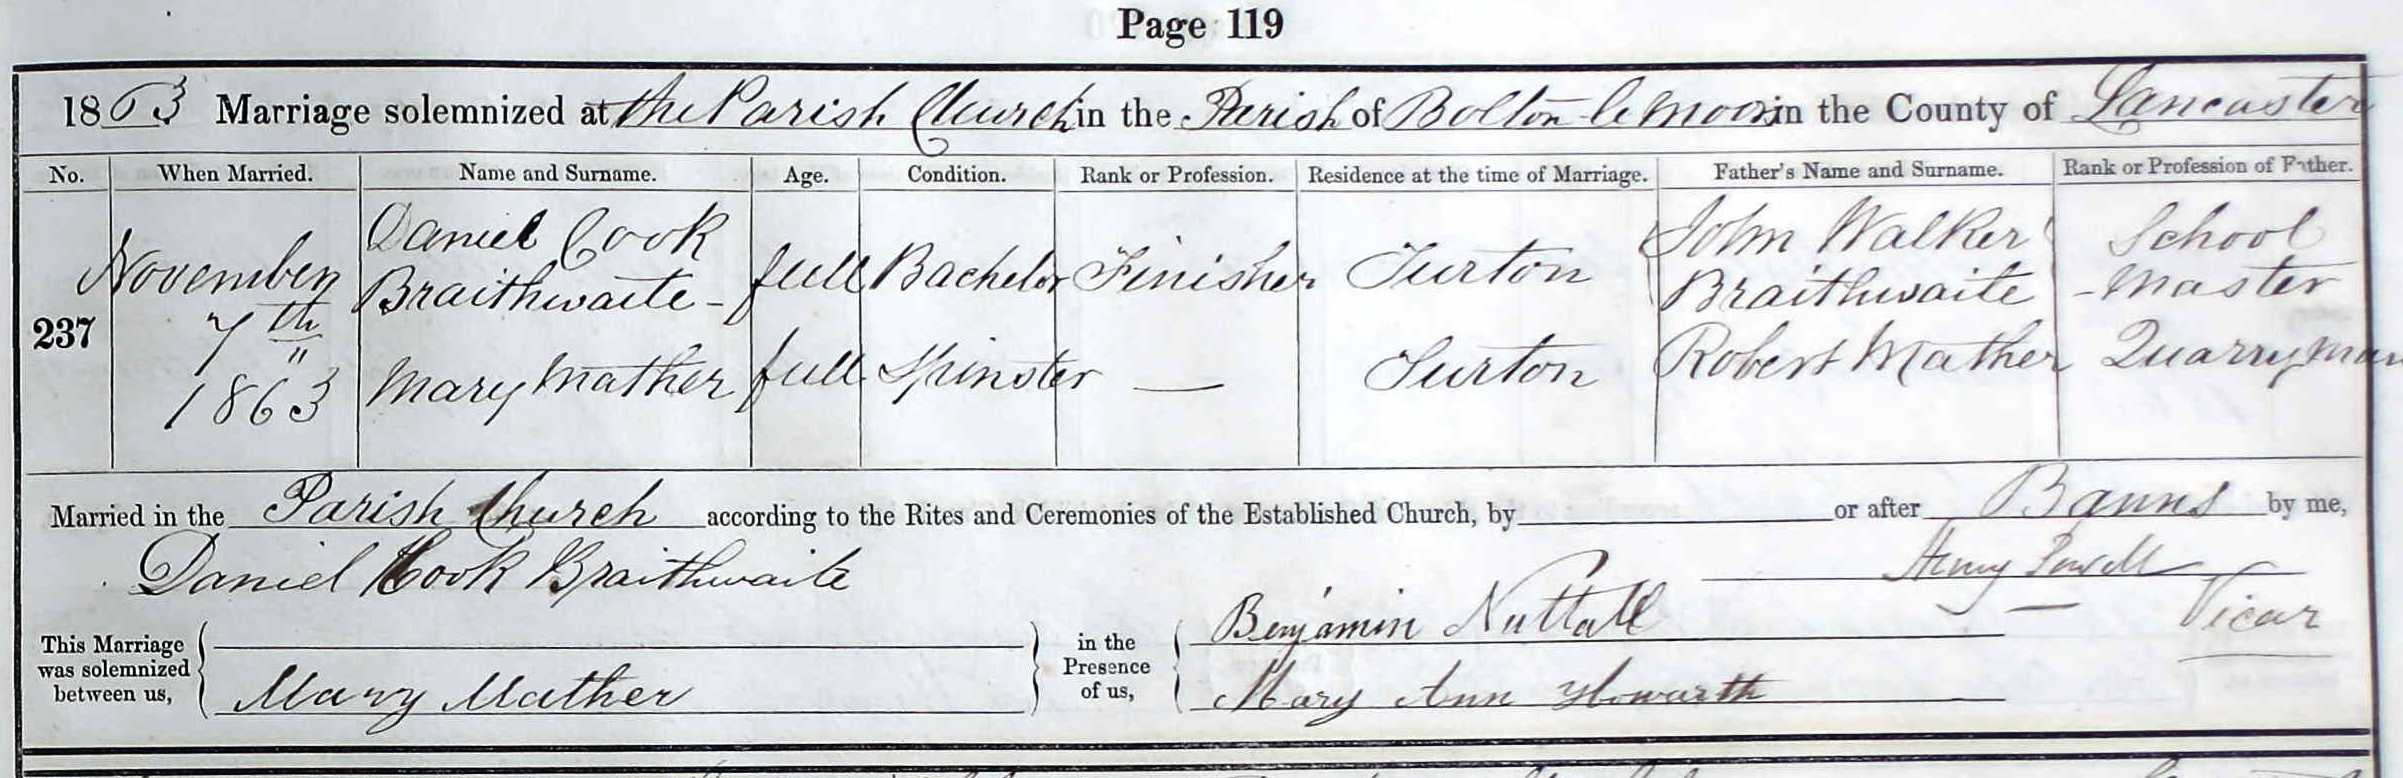 Page 119
1863 Marriage solemnized at the Parish Church in the Parish of Bolton-le-Moors in the County of Lancaster
No. When Married. Name and Surname. Age. Condition. Rank or Profession. Residence at the time of Marriage. Father's Name and Surname. Rank or Profession of Father.
237 November 7th 1863
Daniel Cook Braithwaite - full Bachelor Finisher Turton John Walker Braithwaite School - Master
Mary Mather full Spinster — Turton Robert Mather Quarryman
Married in the Parish Church according to the Rites and Ceremonies of the Established Church, by or after Banns by me,
Daniel Cook Braithwaite Henry Powell
Vicar
This Marriage was solemnized between us, Mary Mather in the Presence of us, Benjamin Nuttall
Mary Ann Howarth